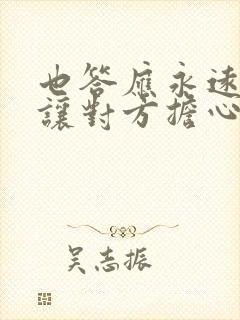 也答應永遠
讓對方擔心
吳志振